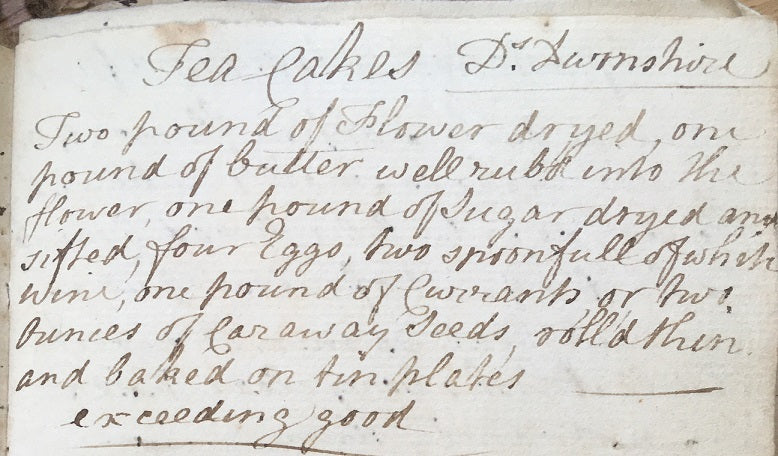 Tea Cakes Dr. Dwrnshire
Two pound of Flower dryed, one
pound of butter well rubd into the
flower, one pound of Sugar dryed and
sifted, four Eggs, two spoonfull of white
wine, one pound of Currants or two
ounces of Caraway Seeds, rolld thin
and baked on tin plates
exceeding good